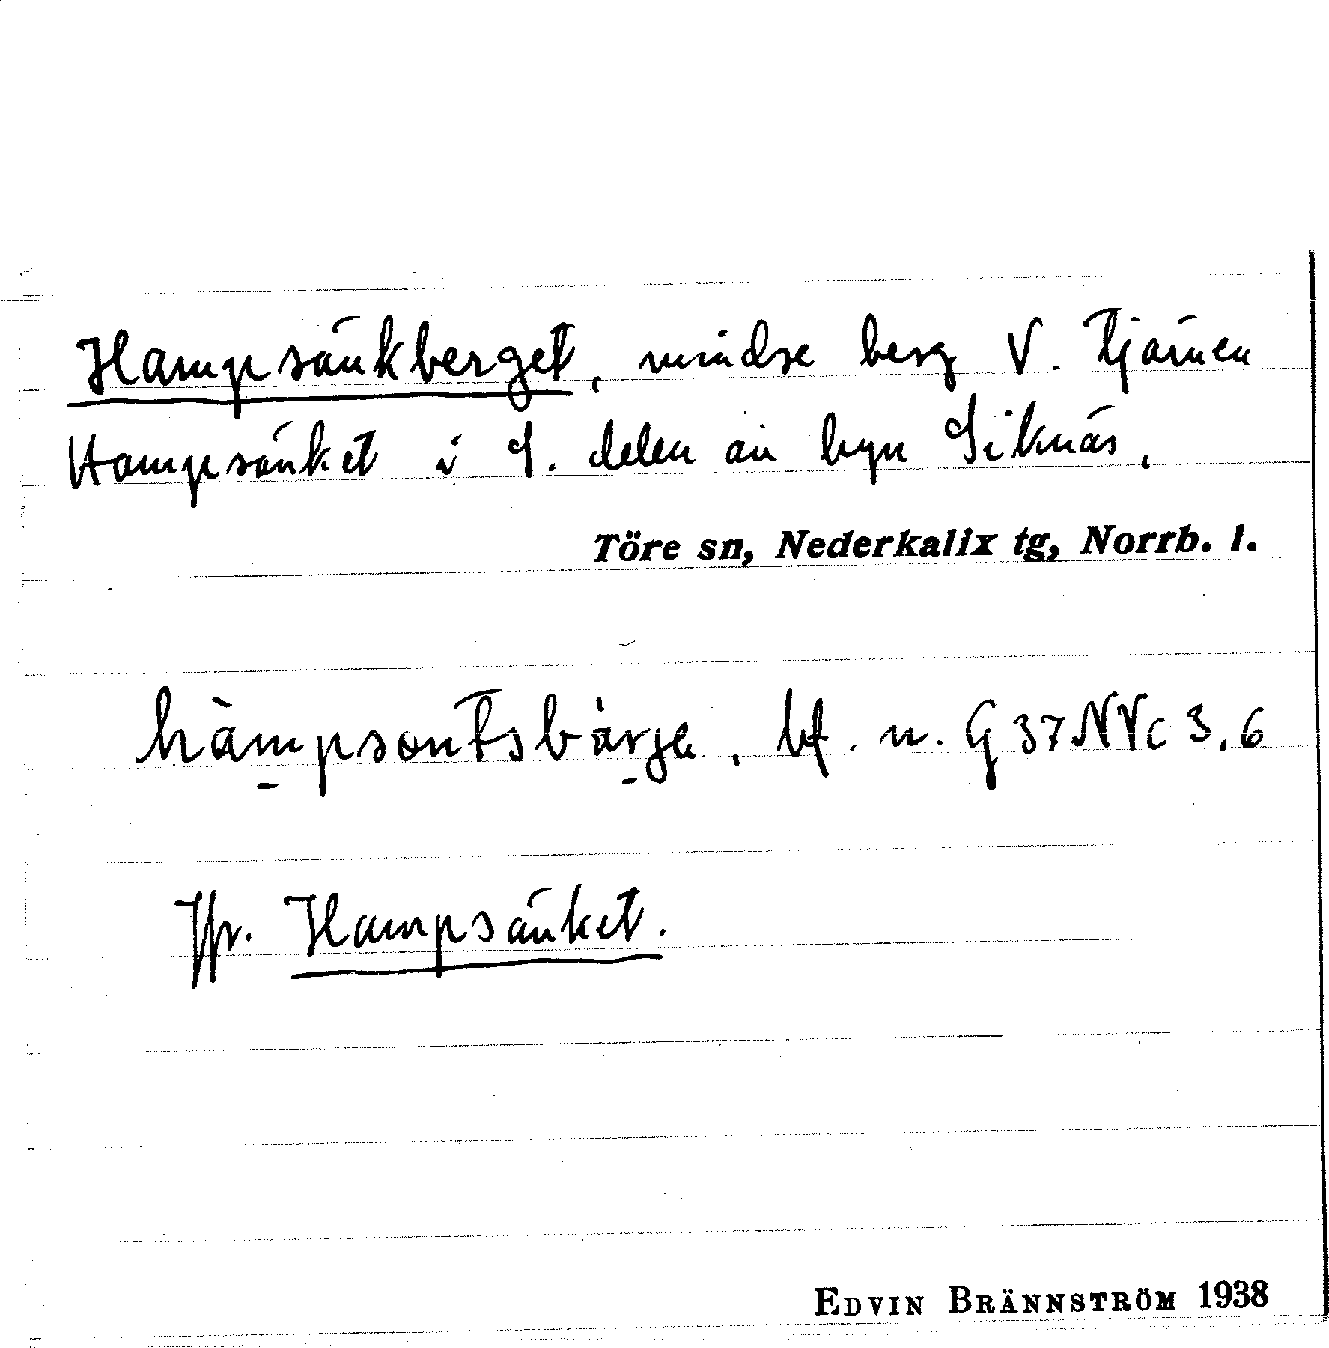 Hampsänkberget, mindre berg V. tjärnen
Hampsänket i S. delen av byn Siknäs.
Töre sn, Nederkalix tg, Norrb. l.
bf. n. G 37 NVc 3, 6
Jfr. Hampsänket.
EDVIN BRÄNNSTRÖM 1938